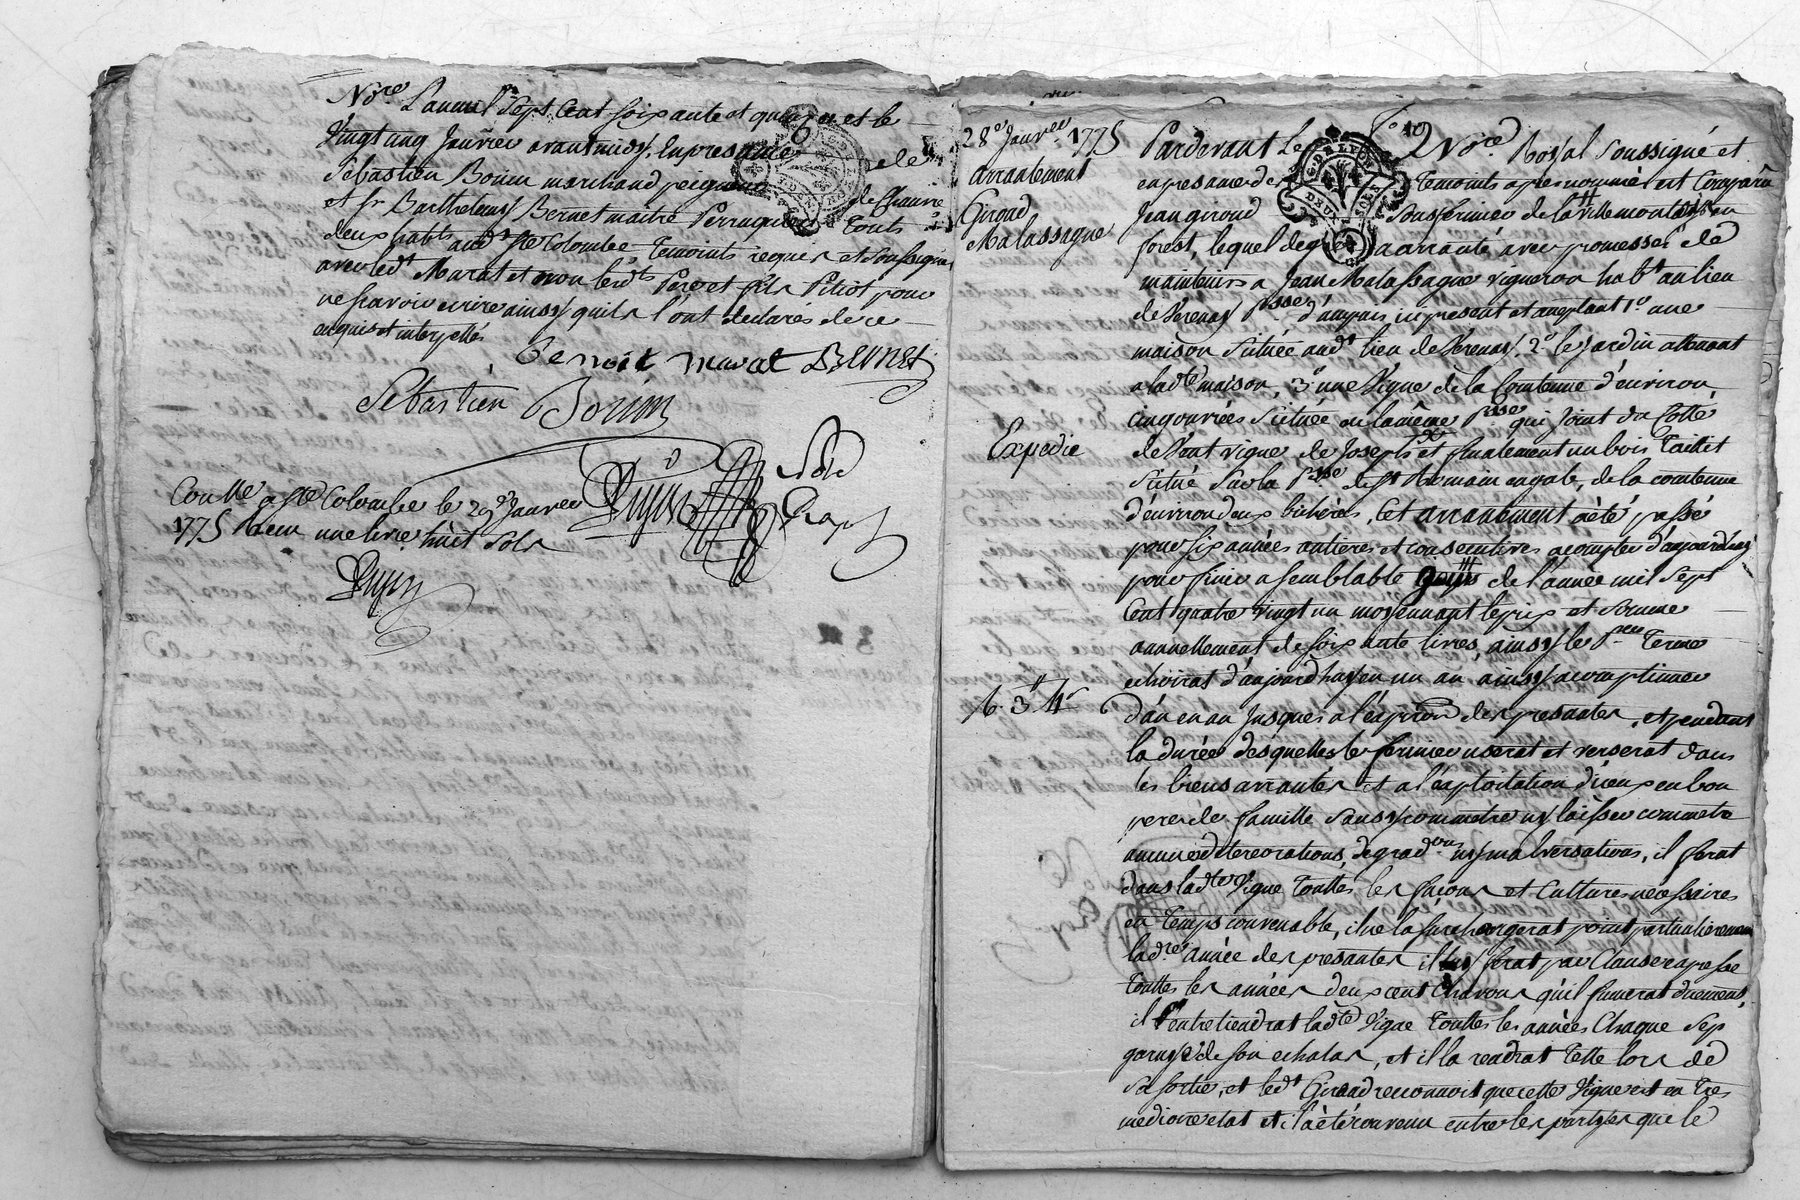 Nore. L'an mil sept Cent soixante et quinze et le
Vingt cinq Janvier avant midy. En presance de
Sebastien Bonin marchand peigneur de Chanvre
et sr. Barthelemy Bernet maitre Perruquier touts
deux habts. audt. Ste Colombe, Temoints requis et soussignés
avec ledt. Marat et non lesdts. Pere et fils Pitiot pour
ne sçavoir ecrire ainsy quils l'ont declarés de ce
enquis et interpellés
Benoit marat Bernet
Sebastien Bonin
Conlle a Ste Colombe le 29e Janvier
1775 Reçu une livre huit sols
28e Janvier 1775
arrantement
Giroud
Malassagne
Expedie
G. DE LYON
DEUX SOLS
Pardevant le Nore. Royal soussigné et
en presance des Temoints apres nommés est Comparu
Jean giroud sousfermier de la Ville montbrison en
forest, lequel de gré a arranté avec promesse de
maintenir a Jean Malassagne vigneron habt. au lieu
de Verenay Psse. d'ampuis icy present et acceptant 1o. une
maison Scituée audt. lieu de Verenay, 2o. le jardin attenant
a ladte. maison, 3o. une Vigne de la Contenue d'environ
cinq ouvrées Scituée en la même Psse. qui joint du Cotté
de Vent vigne de Joseph et finalement un bois Taillit
Scitué sur la Psse. de St Romain en gale, de la contenue
d'environ deux bicherées, Cet arrantement a été passé
pour six années entieres et consecutives a compter d'aujourd'huy
pour finir a semblable jour de l'année mil sept
Cent quatre vingt un moyennant le prix et somme
annuellement de soixante livres, ainsy le per. Terme
echoirat d'aujourd'huy en un an, ainsy a continuer
d'an en an Jusques a l'expiron. des presantes, et pendant
la durée desquelles le fermier userat et verserat dans
les biens arrantés et a l'exploitation d'iceux en bon
pere de famille sans y commettre ny laisser commettre
aucunes detereorations, degradons. ny malversations, il ferat
dans ladte. Vigne touttes les façons et Cultures necessaires
en Temps convenable, il ne la surchargerat point particulierement
la dre. année des presantes il y ferat par Clause expresse
touttes les années deux cent Chavons qu'il fumerat duement,
il entretiendrat ladte. Vigne touttes les années Chaque Sep
garny de son echalas, et il la rendrat Telle lors de
sa sortie, et ledt. Giroud reconnoit que cette Vigne est en Tres
mediocre etat et il a été convenu entre les partyes que le